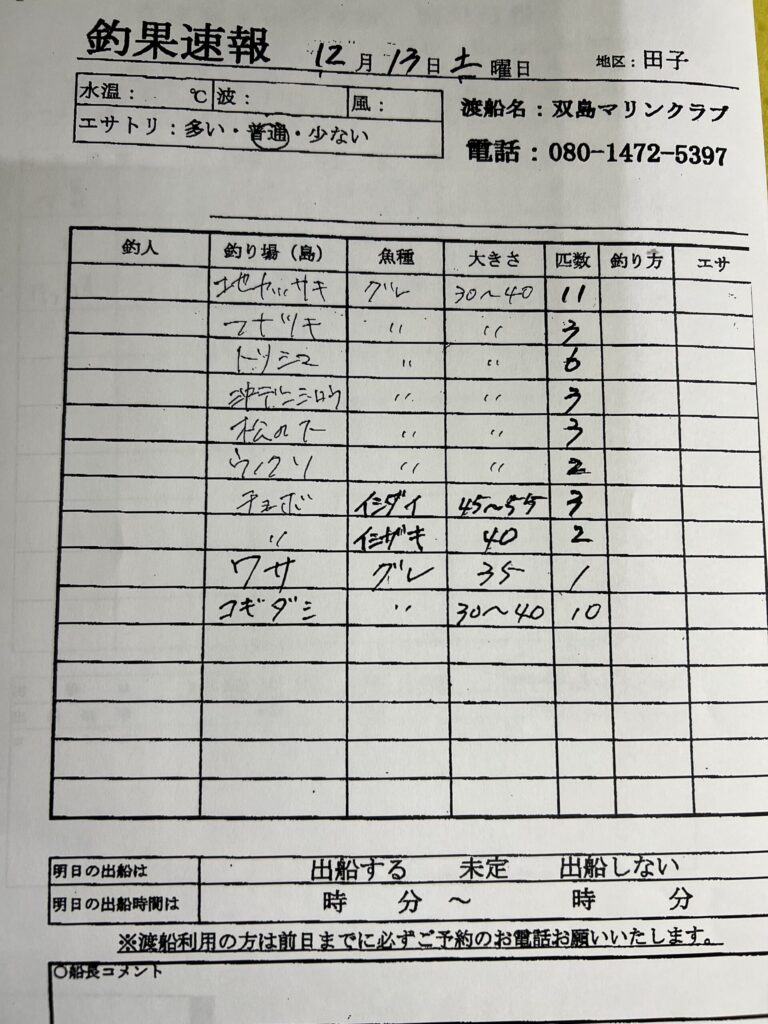 釣果速報 12月13日土曜日 地区：田子
水温： ℃ 波： 風：
エサトリ：多い・普通・少ない
渡船名：双島マリンクラブ
電話：080-1472-5397
釣人 釣り場（島） 魚種 大きさ 匹数 釣り方 エサ
グレ 30～40 11
〃 〃 3
トツシマ 〃 〃 6
沖デンシロウ 〃 〃 3
松の下 〃 〃 3
ウノクソ 〃 〃 2
チョボ イシダイ 45～55 3
〃 イシガキ 40 2
ワサ グレ 35 1
コギダシ 〃 30～40 10
明日の出船は 出船する 未定 出船しない
明日の出船時間は 時 分 ～ 時 分
※渡船利用の方は前日までに必ずご予約のお電話お願いいたします。
○船長コメント